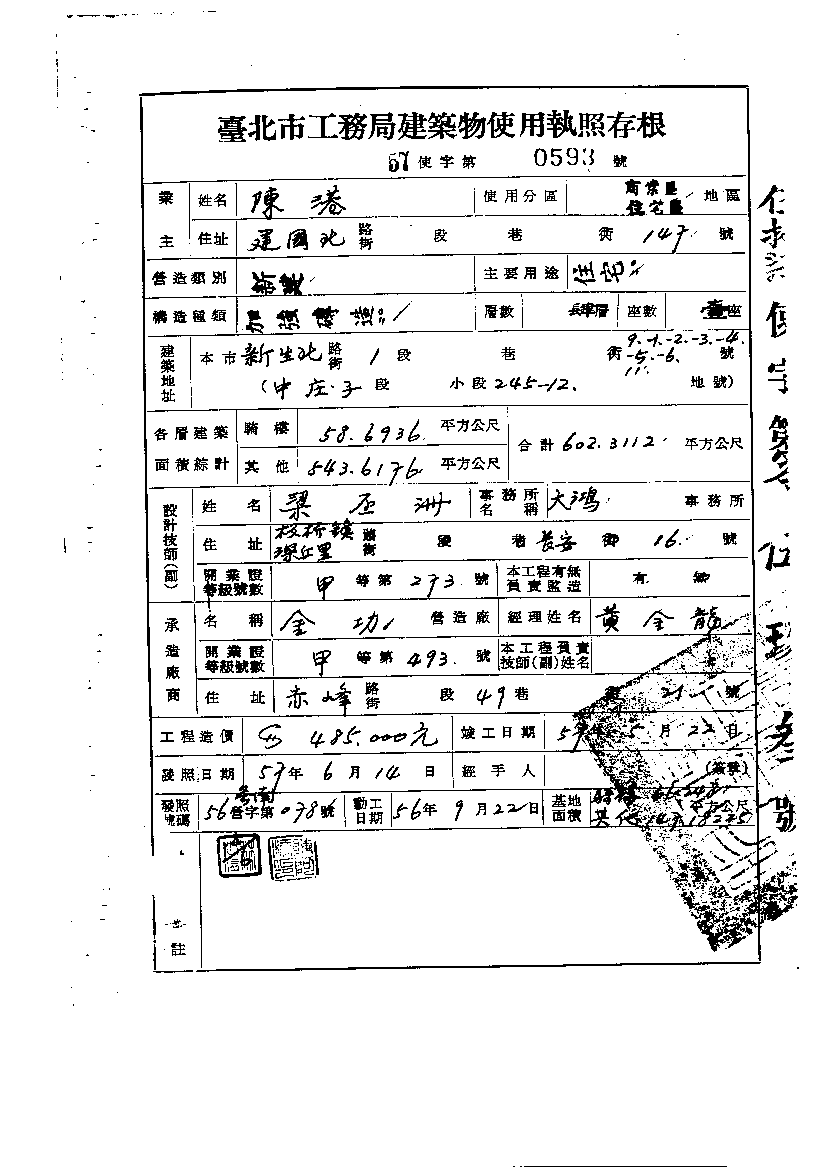 臺北市工務局建築物使用執照存根
57使字第 0593 號
業主 姓名 陳港 使用分區 商業區 住宅區 地區
住址 建國北 路街 段 巷 街 147 號
營造類別 新建 主要用途 住宅
構造種類 加強磚造 層數 層 座數 壹座
建築地址 本市新生北 路街 1 段 巷 街 9.-1.-2.-3.-4.-5.-6. 11. 號
(中庄子段 小段 245-12. 地號)
各層建築面積綜計 騎樓 58.6936 平方公尺 合計 602.3112 平方公尺
其他 543.6176 平方公尺
設計技師(副) 姓名 梁丕洲 事務所名稱 大鴻 事務所
住址 板橋鎮 里 路街 段 巷 長安街 16. 號
開業證等級號數 甲等第 273. 號 本工程有無負責監造 有 無
承造廠商 名稱 金功 營造廠 經理姓名 黃金龍
開業證等級號數 甲等第 493. 號 本工程負責技師(副)姓名
住址 赤峰 路街 段 49 巷 21 號
工程造價 485.000元 竣工日期 57年5月22日
發照日期 57年6月14日 經手人 (簽章)
發照號碼 56營字第078號 動工日期 56年9月22日 基地面積 騎樓 平方公尺 其他
備註